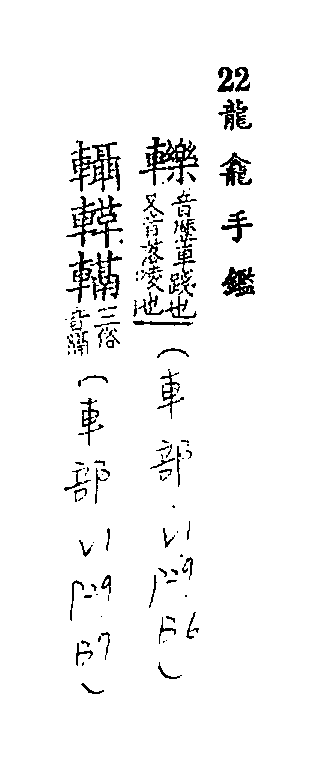 22龍龕手鑑
轢音歷車踐也又音落陵也(車部.V1.P29.B6)
三俗音隔(車部V1P29B7)